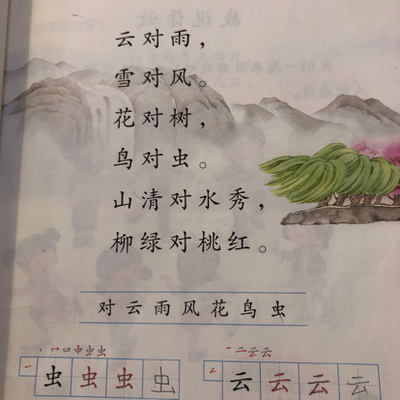 云对雨，
雪对风。
花对树，
鸟对虫。
山清对水秀，
柳绿对桃红。
对 云 雨 风 花 鸟 虫
虫 虫 虫 虫
云 云 云 云